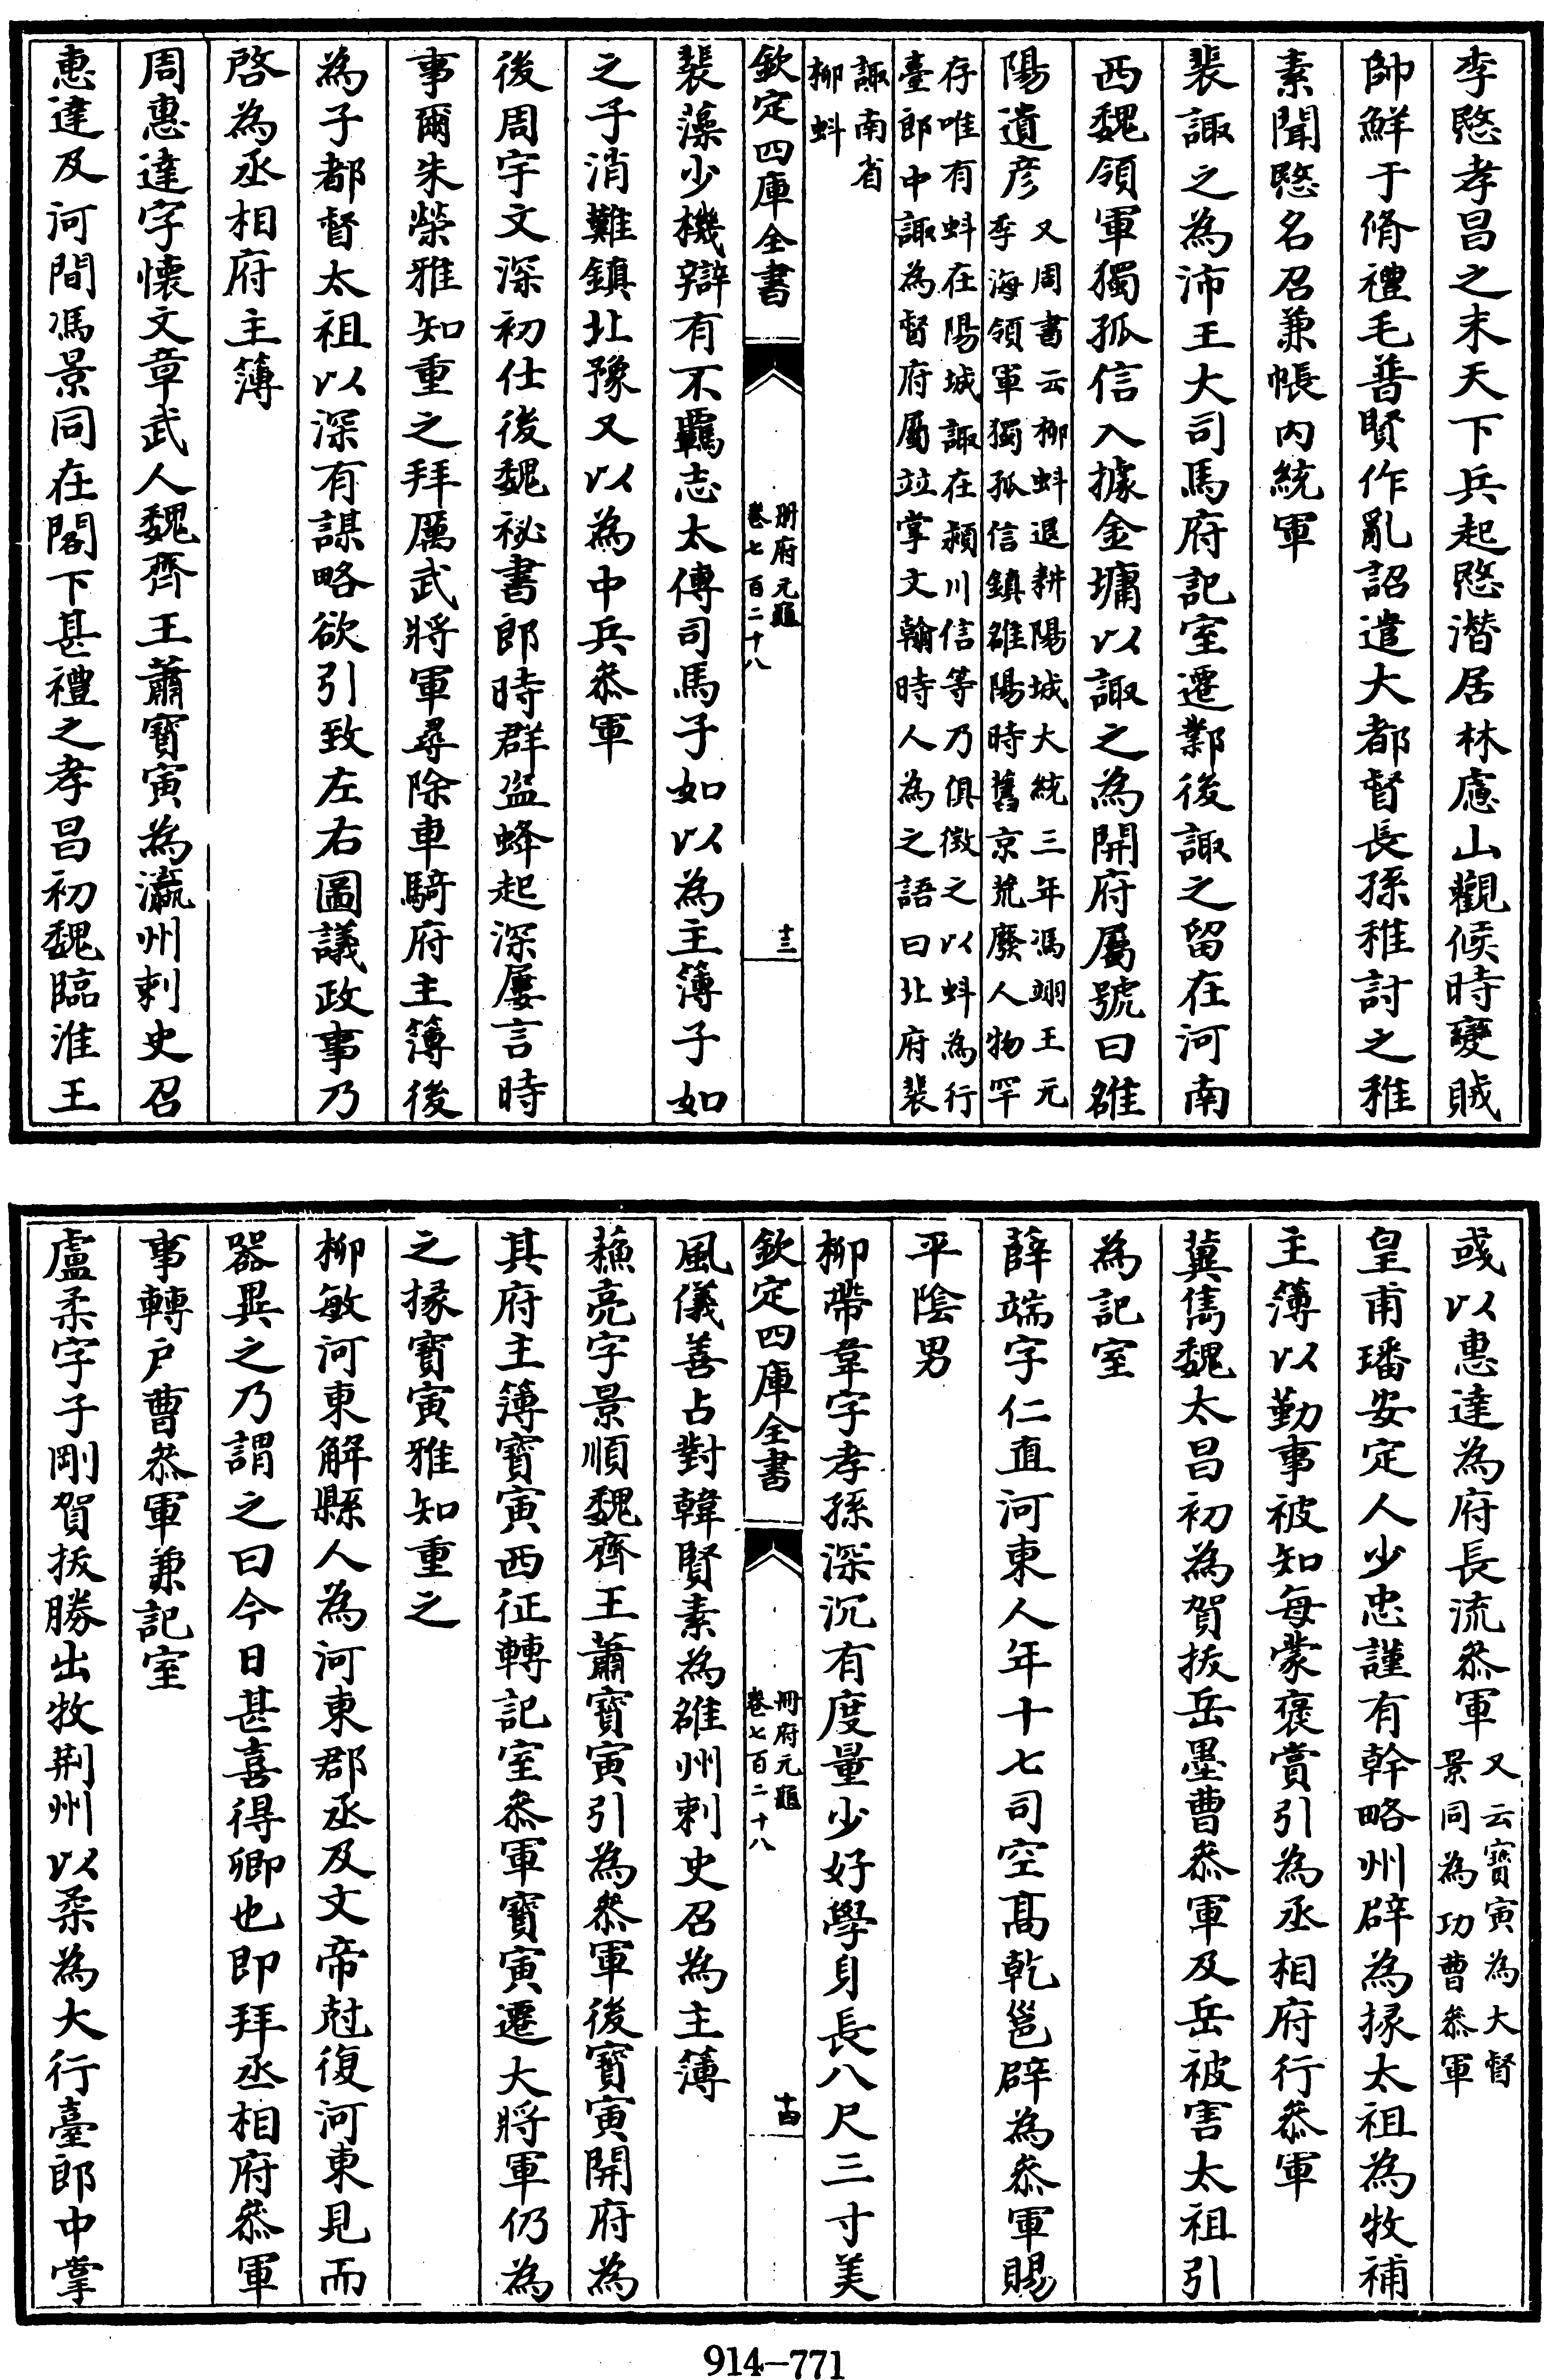 李愍孝昌之末天下兵起愍潛居林慮山觀候時變賊
帥鮮于脩禮毛普賢作亂詔遣大都督長孫稚討之稚
素聞愍名召兼帳內統軍
裴諏之為沛王大司馬府記室遷鄴後諏之留在河南
西魏領軍獨孤信入據金墉以諏之為開府屬號曰雒
陽遺彦又周書云柳蚪退耕陽城大統三年馮翊王元
季海領軍獨孤信鎮雒陽時舊京荒廢人物罕
存唯有蚪在陽城諏在潁川信等乃俱徴之以蚪為行
臺郎中諏為督府屬竝掌文翰時人為之語曰北府裴
諏南省
柳蚪
欽定四庫全書
冊府元龜
卷七百二十八
十三
裴藻少機辯有不羈志太傅司馬子如以為主簿子如
之子消難鎮北豫又以為中兵叅軍
後周宇文深初仕後魏祕書郎時群盜蜂起深屢言時
事爾朱榮雅知重之拜厲武將軍尋除車騎府主簿後
為子都督太祖以深有謀略欲引致左右圖議政事乃
啓為丞相府主簿
周惠達字懷文章武人魏齊王蕭寶寅為瀛州刺史召
惠達及河間馮景同在閤下甚禮之孝昌初魏臨淮王
彧以惠達為府長流叅軍又云寶寅為大督
景同為功曹叅軍
皇甫璠安定人少忠謹有幹略州辟為掾太祖為牧補
主簿以勤事被知每蒙褒賞引為丞相府行叅軍
冀儁魏太昌初為賀拔岳墨曹叅軍及岳被害太祖引
為記室
薛端字仁直河東人年十七司空高乾邕辟為叅軍賜
平陰男
柳帶韋字孝孫深沉有度量少好學身長八尺三寸美
欽定四庫全書
冊府元龜
卷七百二十八
十四
風儀善占對韓賢素為雒州刺史召為主簿
蘓亮字景順魏齊王蕭寶寅引為叅軍後寶寅開府為
其府主簿寶寅西征轉記室叅軍寶寅遷大將軍仍為
之掾寶寅雅知重之
柳敏河東解縣人為河東郡丞及文帝尅復河東見而
器異之乃謂之曰今日甚喜得卿也即拜丞相府叅軍
事轉戶曹叅軍兼記室
盧柔字子剛賀拔勝出牧荆州以柔為大行臺郎中掌
914-771